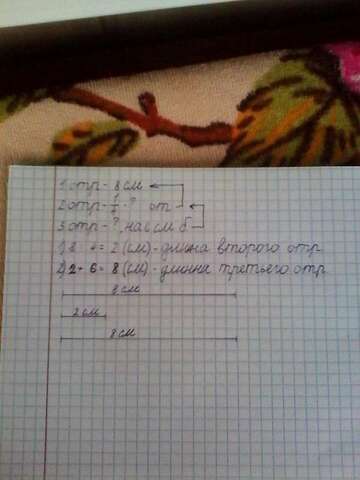 1 отр - 8 см
2 отр - 1/4 - ? от
3 отр - ?, на см б
1) 8 : 4 = 2 (см) - длина второго отр
2) 2 + 6 = 8 (см) - длинна третьего отр
8 см
2 см
8 см